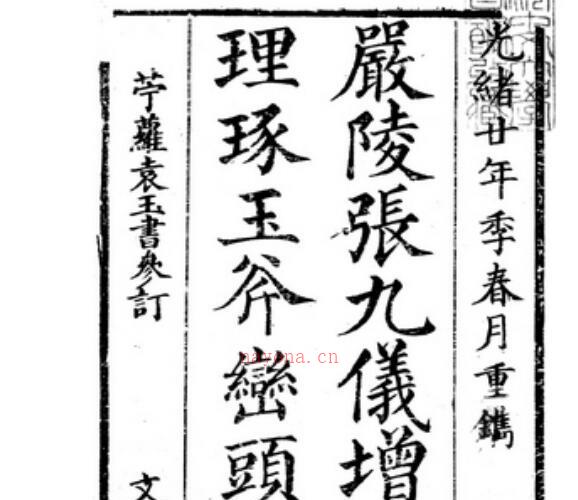 光緒廿年季春月重鐫
嚴陵張九儀增
理琢玉斧巒頭
苧蘿袁玉書參訂
文
nayona.cn